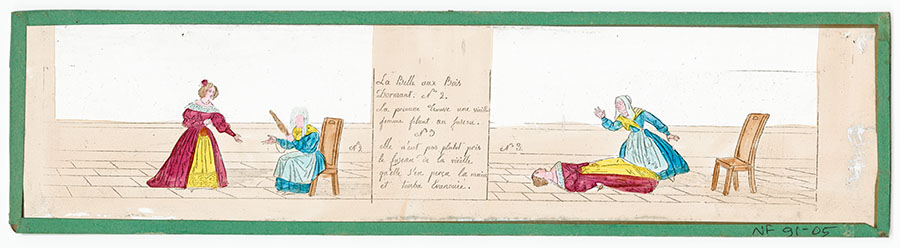 La Belle aux Bois
Dormant. N° 2.
La princesse trouve une vieille
femme filant au fuseau.
N° 3
elle n'eut pas plutôt pris
le fuseau de la vieille
qu'elle s'en perça la main
et tomba évanouie.
N° 2
N° 3.
NF 91-05